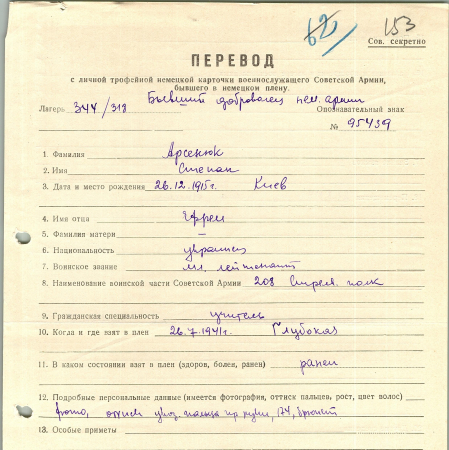 62
153
Сов. секретно
ПЕРЕВОД
с личной трофейной немецкой карточки военнослужащего Советской Армии,
бывшего в немецком плену.
Бывший доброволец нем. армии
Лагерь 344/318 Опознавательный знак
№ 95439
1. Фамилия Арсенюк
2. Имя Степан
3. Дата и место рождения 26.12.1915г. Киев
4. Имя отца Ефрем
5. Фамилия матери —
6. Национальность украинец
7. Воинское звание мл. лейтенант
8. Наименование воинской части Советской Армии 208 стрел. полк
9. Гражданская специальность учитель
10. Когда и где взят в плен 26.7.1941г. Глубокая
11. В каком состоянии взят в плен (здоров, болен, ранен) ранен
12. Подробные персональные данные (имеется фотография, оттиск пальцев, рост, цвет волос)
фото, оттиск указ. пальца пр. руки, 174, брюнет
13. Особые приметы